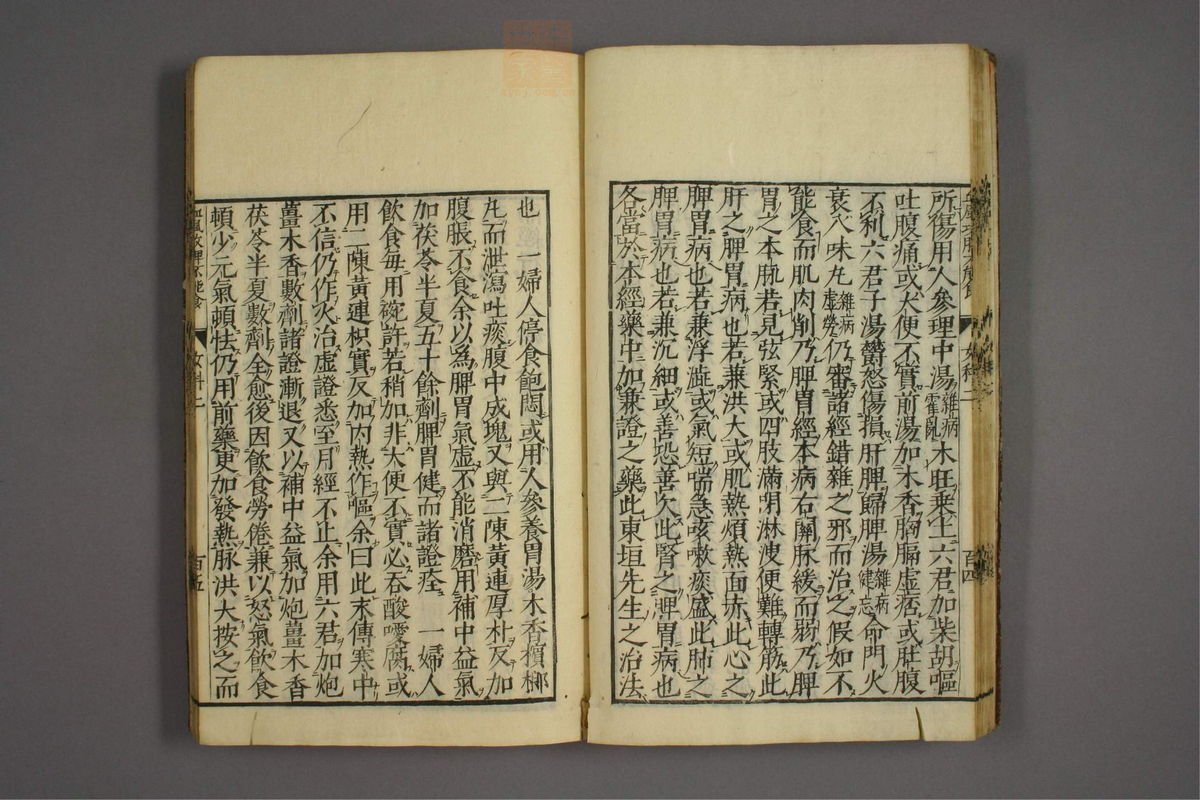 所傷用人參理中湯雜病霍亂木旺乗土六君加柴胡嘔
吐腹痛或大便不實前湯加木香胸膈虛痞或肚腹
不利六君子湯鬱怒傷損肝脾歸脾湯雜病健忘命門火
衰八味丸雜病虛勞仍審諸經錯雜之邪而治之假如不
能食而肌肉削乃脾胃經本病右關脉緩而弱乃脾
胃之本脉若見弦緊或四肢滿閉淋溲便難轉筋此
肝之脾胃病也若兼洪大或肌熱煩熱面赤此心之
脾胃病也若兼浮澁或氣短喘急咳嗽痰盛此肺之
脾胃病也若兼沉細或善恐善欠此腎之脾胃病也
各當於本經藥中加兼證之藥此東垣先生之治法
女科二
百四
也一婦人停食飽悶或用人參養胃湯木香檳榔
丸而泄瀉吐痰腹中成塊又與二陳黃連厚朴反加
腹脹不食余以爲脾胃氣虛不能消磨用補中益氣
加茯苓半夏五十餘劑脾胃健而諸證痊 一婦人
飲食每用碗許若稍加非大便不實必吞酸噯腐或
用二陳黃連枳實反加內熱作嘔余曰此末傳寒中
不信仍作火治虛證悉至月經不止余用六君加炮
薑木香數劑諸證漸退又以補中益氣加炮薑木香
茯苓半夏數劑全愈後因飲食勞倦兼以怒氣飲食
頓少元氣頓怯仍用前藥更加發熱脉洪大按之而
女科二
百五